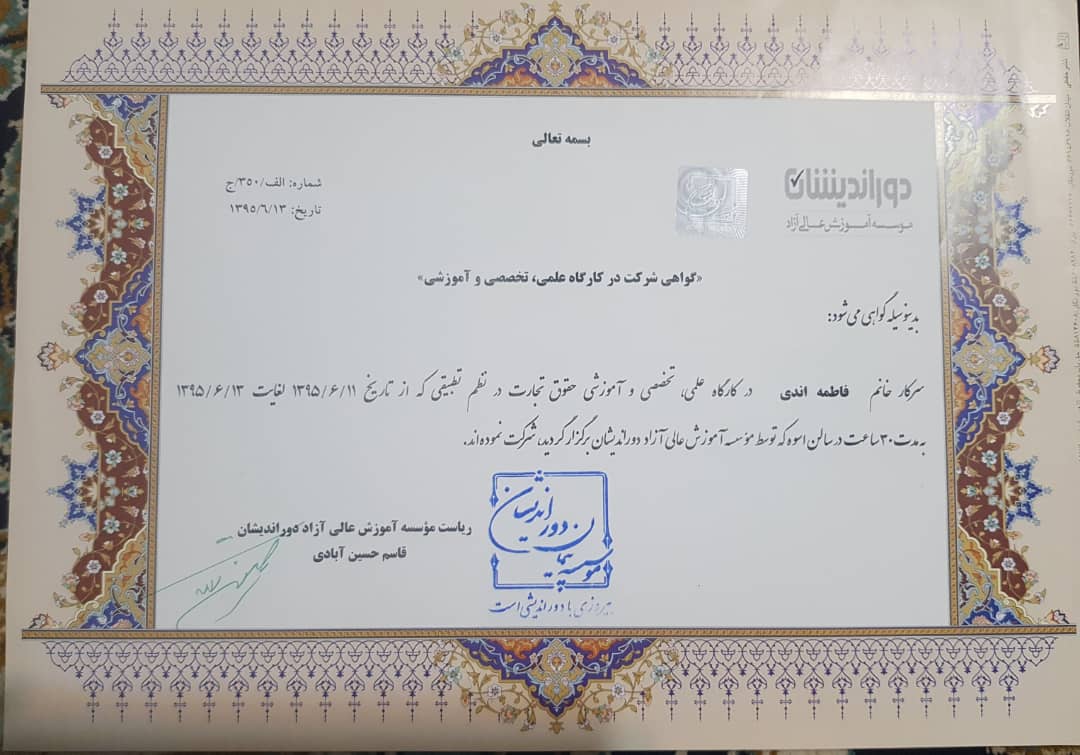 بسمه تعالی
دوراندیشان
موسسه آموزش عالی آزاد
شماره: الف/۳۵۰/ج
تاریخ: ۱۳۹۵/۶/۱۳
«گواهی شرکت در کارگاه علمی، تخصصی و آموزشی»
بدینوسیله گواهی می‌شود:
سرکار خانم فاطمه اندی در کارگاه علمی، تخصصی و آموزشی حقوق تجارت در نظم تطبیقی که از تاریخ ۱۳۹۵/۶/۱۱ لغایت ۱۳۹۵/۶/۱۳
به مدت ۳۰ ساعت در سالن اسوه که توسط مؤسسه آموزش عالی آزاد دوراندیشان برگزار گردید، شرکت نموده‌اند.
ریاست مؤسسه آموزش عالی آزاد دوراندیشان
قاسم حسین آبادی
دوراندیشان
موسسه
پیروزی با دوراندیشی است